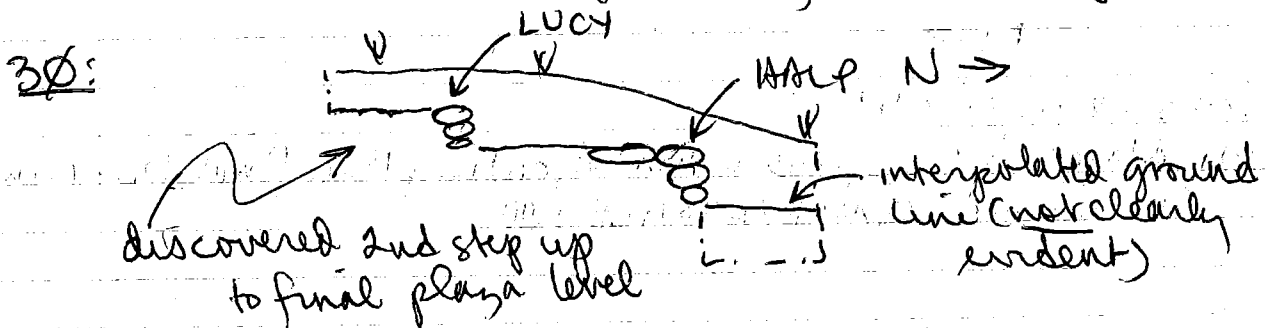 LUCY
30:
HALP N →
interpolated ground
line (not clearly
evident)
discovered 2nd step up
to final plaza level